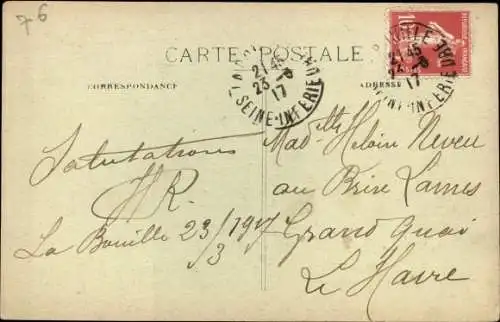 76
CARTE POSTALE
CORRESPONDANCE
ADRESSE
10
LA BOUILLE
21 45
23 - 3
17
SEINE-INFERIEURE
LA BOUILLE
21 45
23 - 3
17
SEINE-INFERIEURE
Salutations
HR.
La Bouille 23/3 1917
Madelle Heloïne Neveu
au Brise Lames
Grand Quai
Le Havre